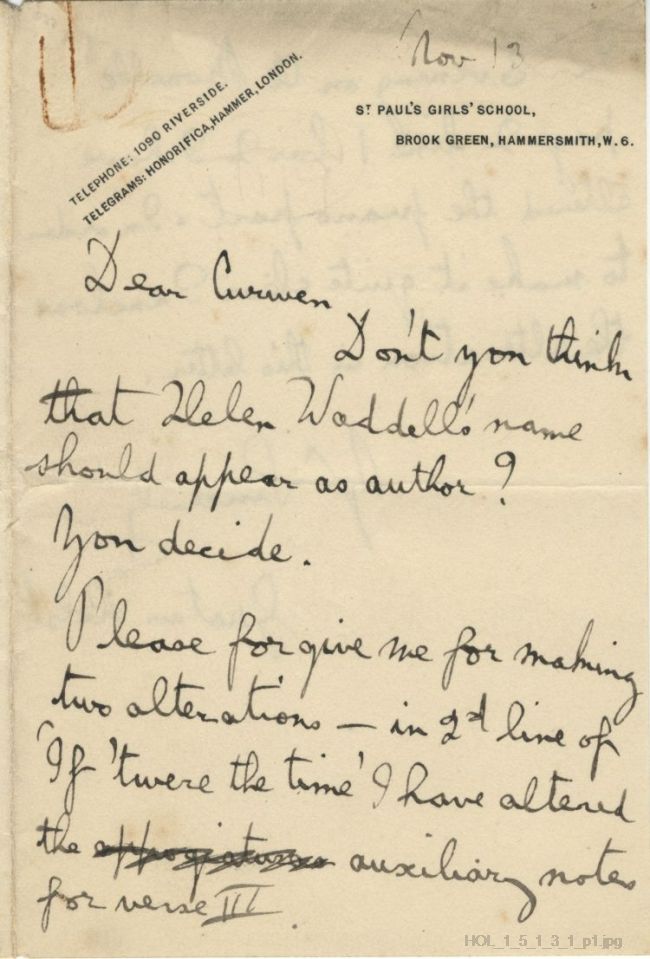 Nov 13
TELEPHONE: 1090 RIVERSIDE.
TELEGRAMS: HONORIFICA, HAMMER, LONDON.
ST PAUL'S GIRLS' SCHOOL,
BROOK GREEN, HAMMERSMITH, W. 6.
Dear Curwen
Don't you think
that Helen Waddell's name
should appear as author?
You decide.
Please forgive me for making
two alterations – in 2d line of
'If 'twere the time' I have altered
the appogiaturas auxiliary notes
for verse III.
HOL_1_5_1_3_1_p1.jpg